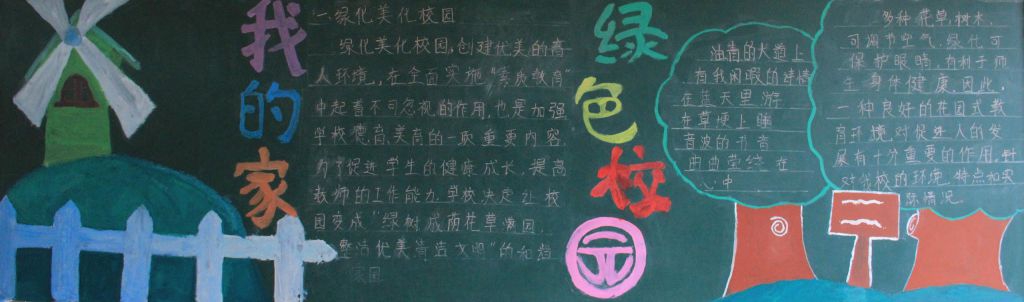 我的家
一、绿化美化校园
绿化美化校园,创建优美的育
人环境,在全面实施“素质教育”
中起着不可忽视的作用,也是加强
学校德育、美育的一项重要内容
为了促进学生的健康成长,提高
教师的工作能力,学校决定让校
园变成“绿树成荫花草满园,
整洁优美
绿色校园
油青的大道上
有我闲暇的
在蓝天里游
在草埂上睡
音波的
曲曲萦绕在
心中
多种花草、树木,
可调节空气,绿化可
保护眼睛,有利于师
生身体健康,因此,
一种良好的花园式教
育环境,对促进人的发
展有十分重要的作用,针
对我校的环境特点和实
际情况。